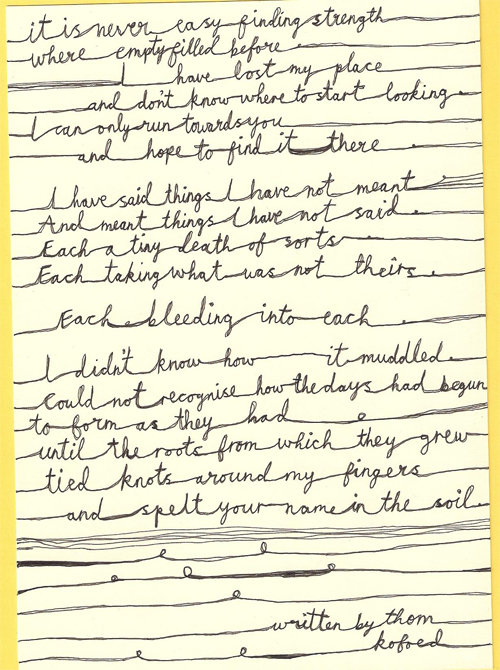 it is never easy finding strength
where empty filled before.
I have lost my place
and don't know where to start looking.
I can only run towards you
and hope to find it there.
I have said things I have not meant
And meant things I have not said.
Each a tiny death of sorts
Each taking what was not theirs.
Each bleeding into each.
I didn't know how it muddled.
Could not recognise how the days had begun
to form as they had
until the roots from which they grew
tied knots around my fingers
and spelt your name in the soil.
written by thom
kofoed